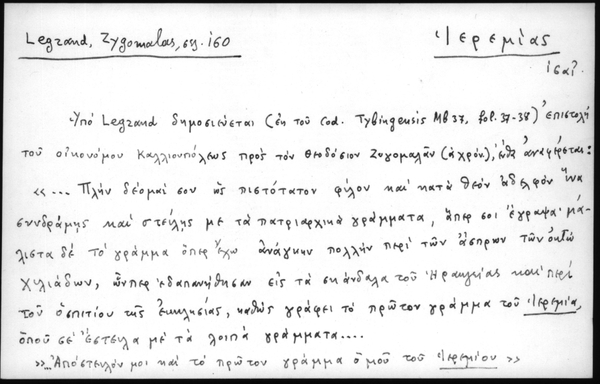 Legrand, Zygomalas, σελ. 160
Ἱερεμίας
ἰσαϊ.
Ὑπό Legrand δημοσιεύεται (ἐκ τοῦ Cod. Tybingensis Mb 37, fol. 37-38) ἐπιστολή
τοῦ οἰκονόμου Καλλιουπόλεως πρὸς τὸν Θεοδόσιον Ζυγομαλᾶν (ἀχρόν.), ἔνθα ἀναφέρεται:
«... Πλήν δέομαί σου ὡς πιστότατον φίλον καί κατά θεόν ἀδελφόν ἵνα
συνδράμῃς καί στείλῃς με τά πατριαρχικά γράμματα, ἅπερ σοι ἔγραψα· μά-
λιστα δέ τό γράμμα ὅπερ ἔχω ἀνάγκην πολλήν περί τῶν ἄσπρων τῶν ὀκτώ
χιλιάδων, ὧνπερ ἐδαπανήθησαν εἰς τά σκάνδαλα τοῦ Ἡρακλείας καί περί
τοῦ ὁσπιτίου τῆς ἐκκλησίας, καθώς γράφει τό πρῶτον γράμμα τοῦ Ἱερεμία,
ὁποῦ σέ ἔστειλα μέ τά λοιπά γράμματα....
»... Ἀπόστειλόν μοι καί τό πρῶτον γράμμα ὁμοῦ τοῦ Ἱερεμίου »